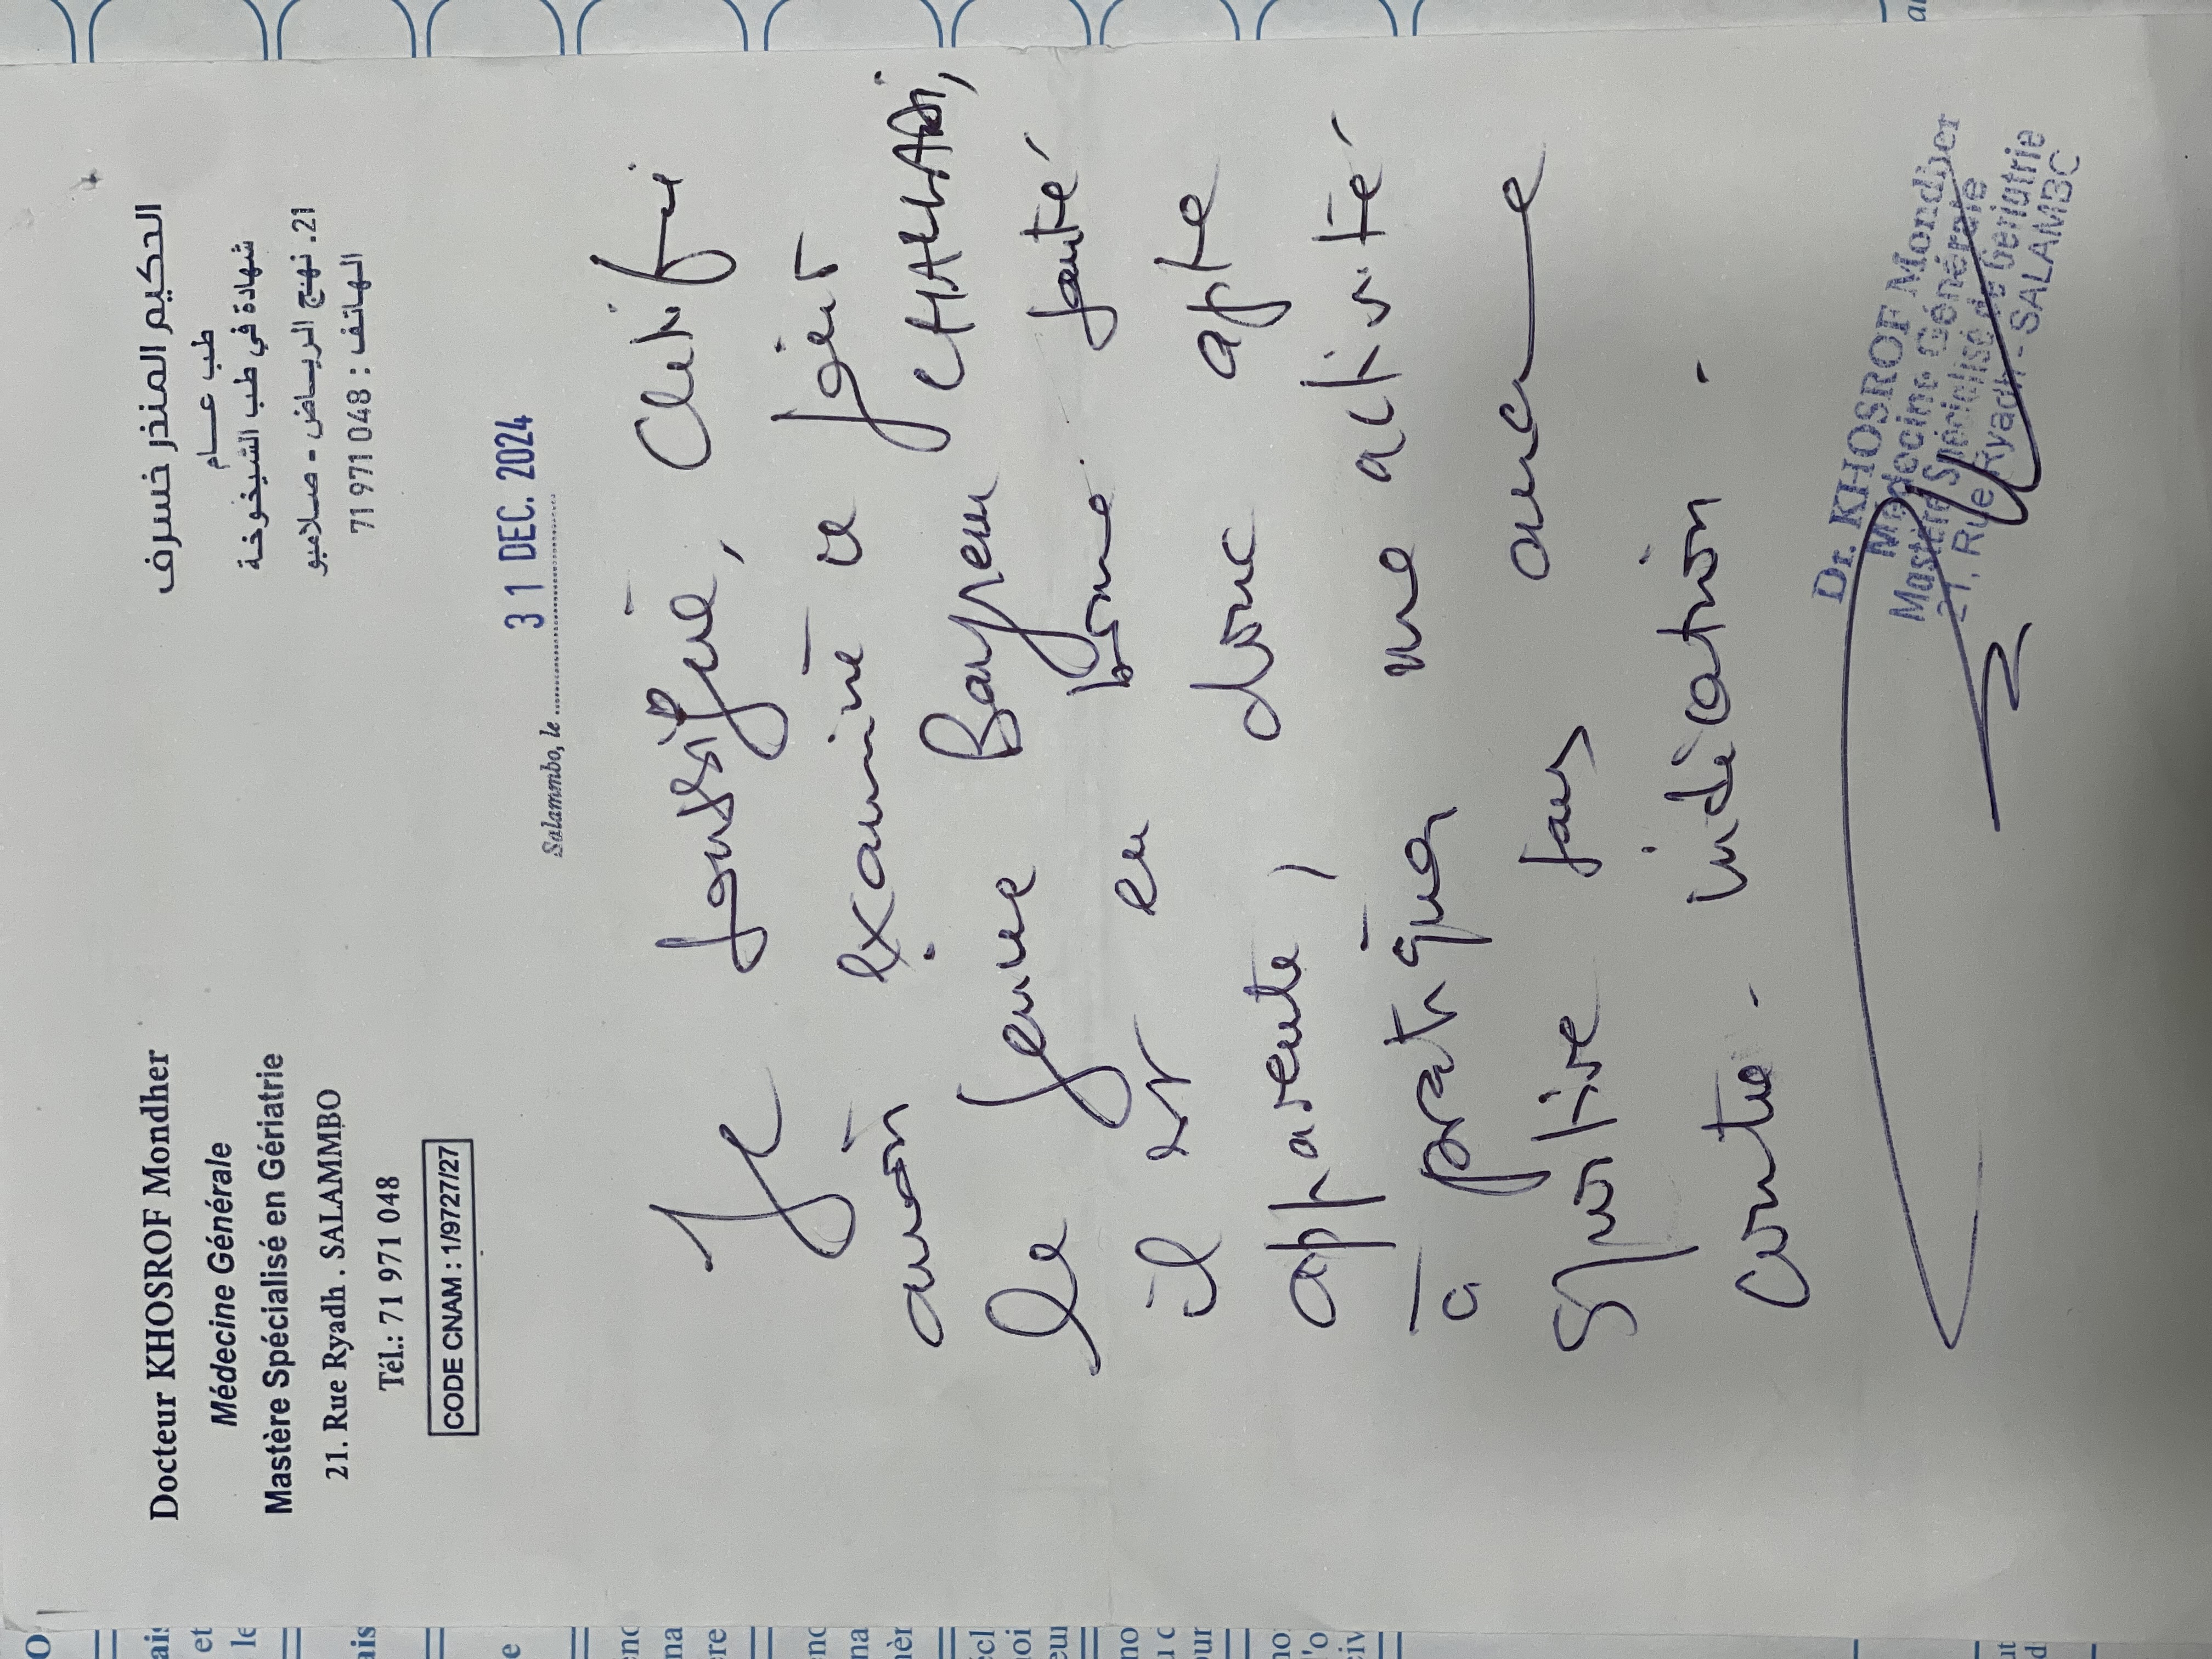 Docteur KHOSROF Mondher
Médecine Générale
Mastère Spécialisé en Gériatrie
21. Rue Ryadh . SALAMMBO
Tél.: 71 971 048
CODE CNAM : 1/9727/27
الحكيم المنذر خسرف
طب عــــام
شهادة في طب الشيخوخة
21. نهج الريــاض - صلامبو
الهاتف : 048 971 71
Salammbo, le 31 DEC. 2024
Je soussigné, Certifie
avoir examiné ce jour
le jeune Rayen CHALLADI,
il est en bonne santé
apparente, donc apte
à pratiquer une activité
sportive sans aucune
contre-indication.
Dr. KHOSROF Mondher
Médecine Générale
Mastère Spécialisé de Gériatrie
21, Rue Ryadh - SALAMBO